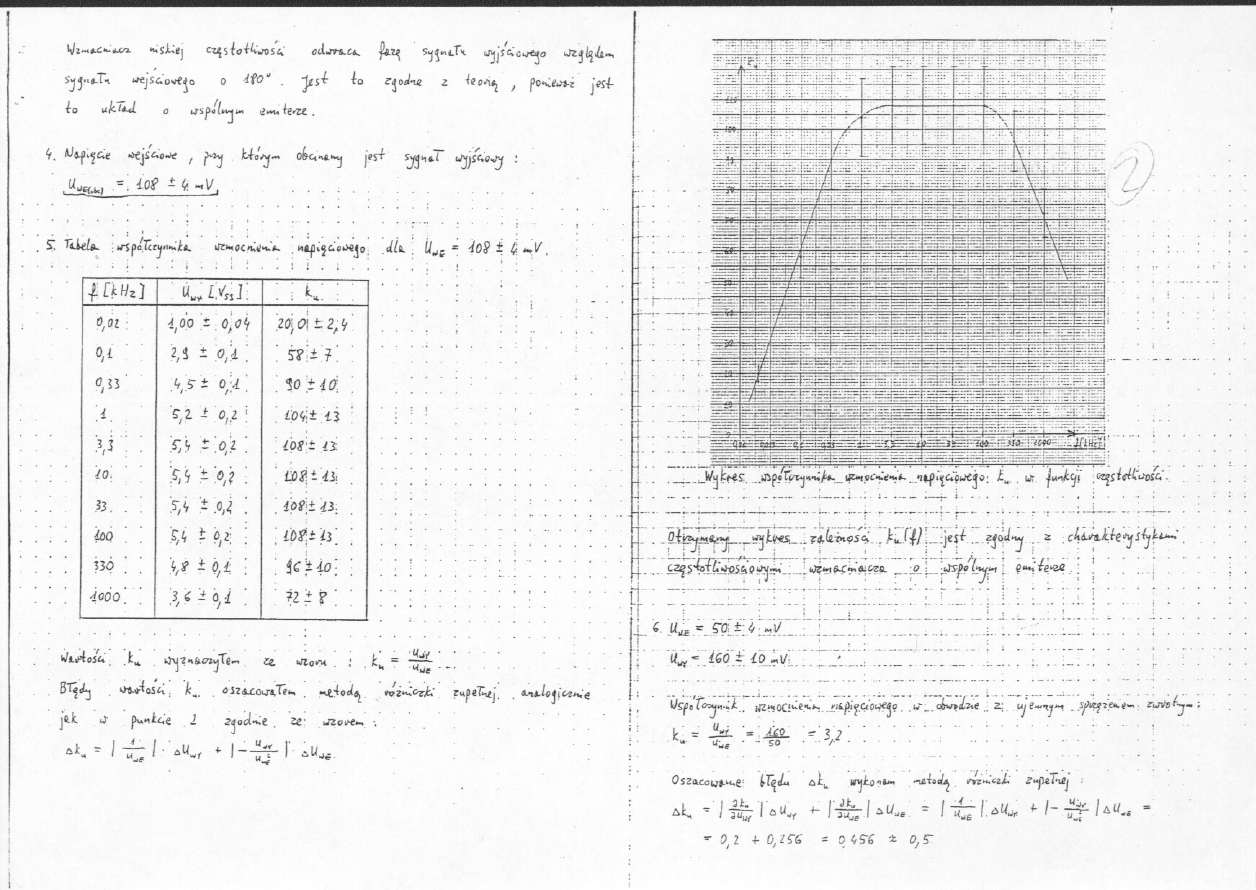 Wzmacniacz niskiej częstotliwości odwraca fazę sygnału wyjściowego względem
sygnału wejściowego o 180°. Jest to zgodne z teorią, ponieważ jest
to układ o wspólnym emiterze.
4. Napięcie wejściowe, przy którym obcinany jest sygnał wyjściowy:
U_WE(obc) = 108 ± 4 mV
5. Tabela współczynnika wzmocnienia napięciowego dla U_WE = 108 ± 4 mV.
f [kHz] U_WY [V_SS] k_u
0,02 1,00 ± 0,04 20,0 ± 2,4
0,1 2,9 ± 0,1 58 ± 7
0,33 4,5 ± 0,1 90 ± 10
1 5,2 ± 0,2 104 ± 13
3,3 5,4 ± 0,2 108 ± 13
10 5,4 ± 0,2 108 ± 13
33 5,4 ± 0,2 108 ± 13
100 5,4 ± 0,2 108 ± 13
330 4,8 ± 0,1 96 ± 10
1000 3,6 ± 0,1 72 ± 8
Wartości k_u wyznaczyłem ze wzoru : k_u = U_WY / U_WE
Błędy wartości k_u oszacowałem metodą różniczki zupełnej analogicznie
jak w punkcie 2 zgodnie ze wzorem :
Δk_u = | 1 / U_WE | · ΔU_WY + | - U_WY / U_WE² | · ΔU_WE
2
Wykres współczynnika wzmocnienia napięciowego k_u w funkcji częstotliwości.
Otrzymany wykres zależności k_u(f) jest zgodny z charakterystykami
częstotliwościowymi wzmacniacza o wspólnym emiterze
6. U_WE = 50 ± 4 mV
U_WY = 160 ± 10 mV
Współczynnik wzmocnienia napięciowego w obwodzie z ujemnym sprzężeniem zwrotnym :
k_u = U_WY / U_WE = 160 / 50 = 3,2
Oszacowanie błędu Δk_u wykonam metodą różniczki zupełnej :
Δk_u = | ∂k_u / ∂U_WY | ΔU_WY + | ∂k_u / ∂U_WE | ΔU_WE = | 1 / U_WE | · ΔU_WY + | - U_WY / U_WE² | ΔU_WE =
= 0,2 + 0,256 = 0,456 ≈ 0,5